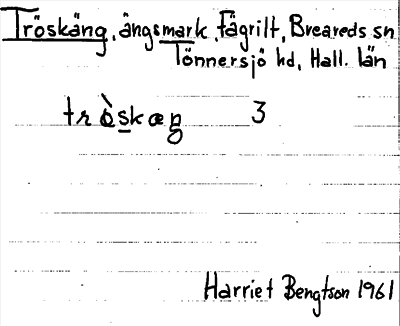 Tröskäng, ängsmark, Fägrilt, Breareds sn
Tönnersjö hd, Hall. län
trɵ̀skæŋ 3
Harriet Bengtson 1961